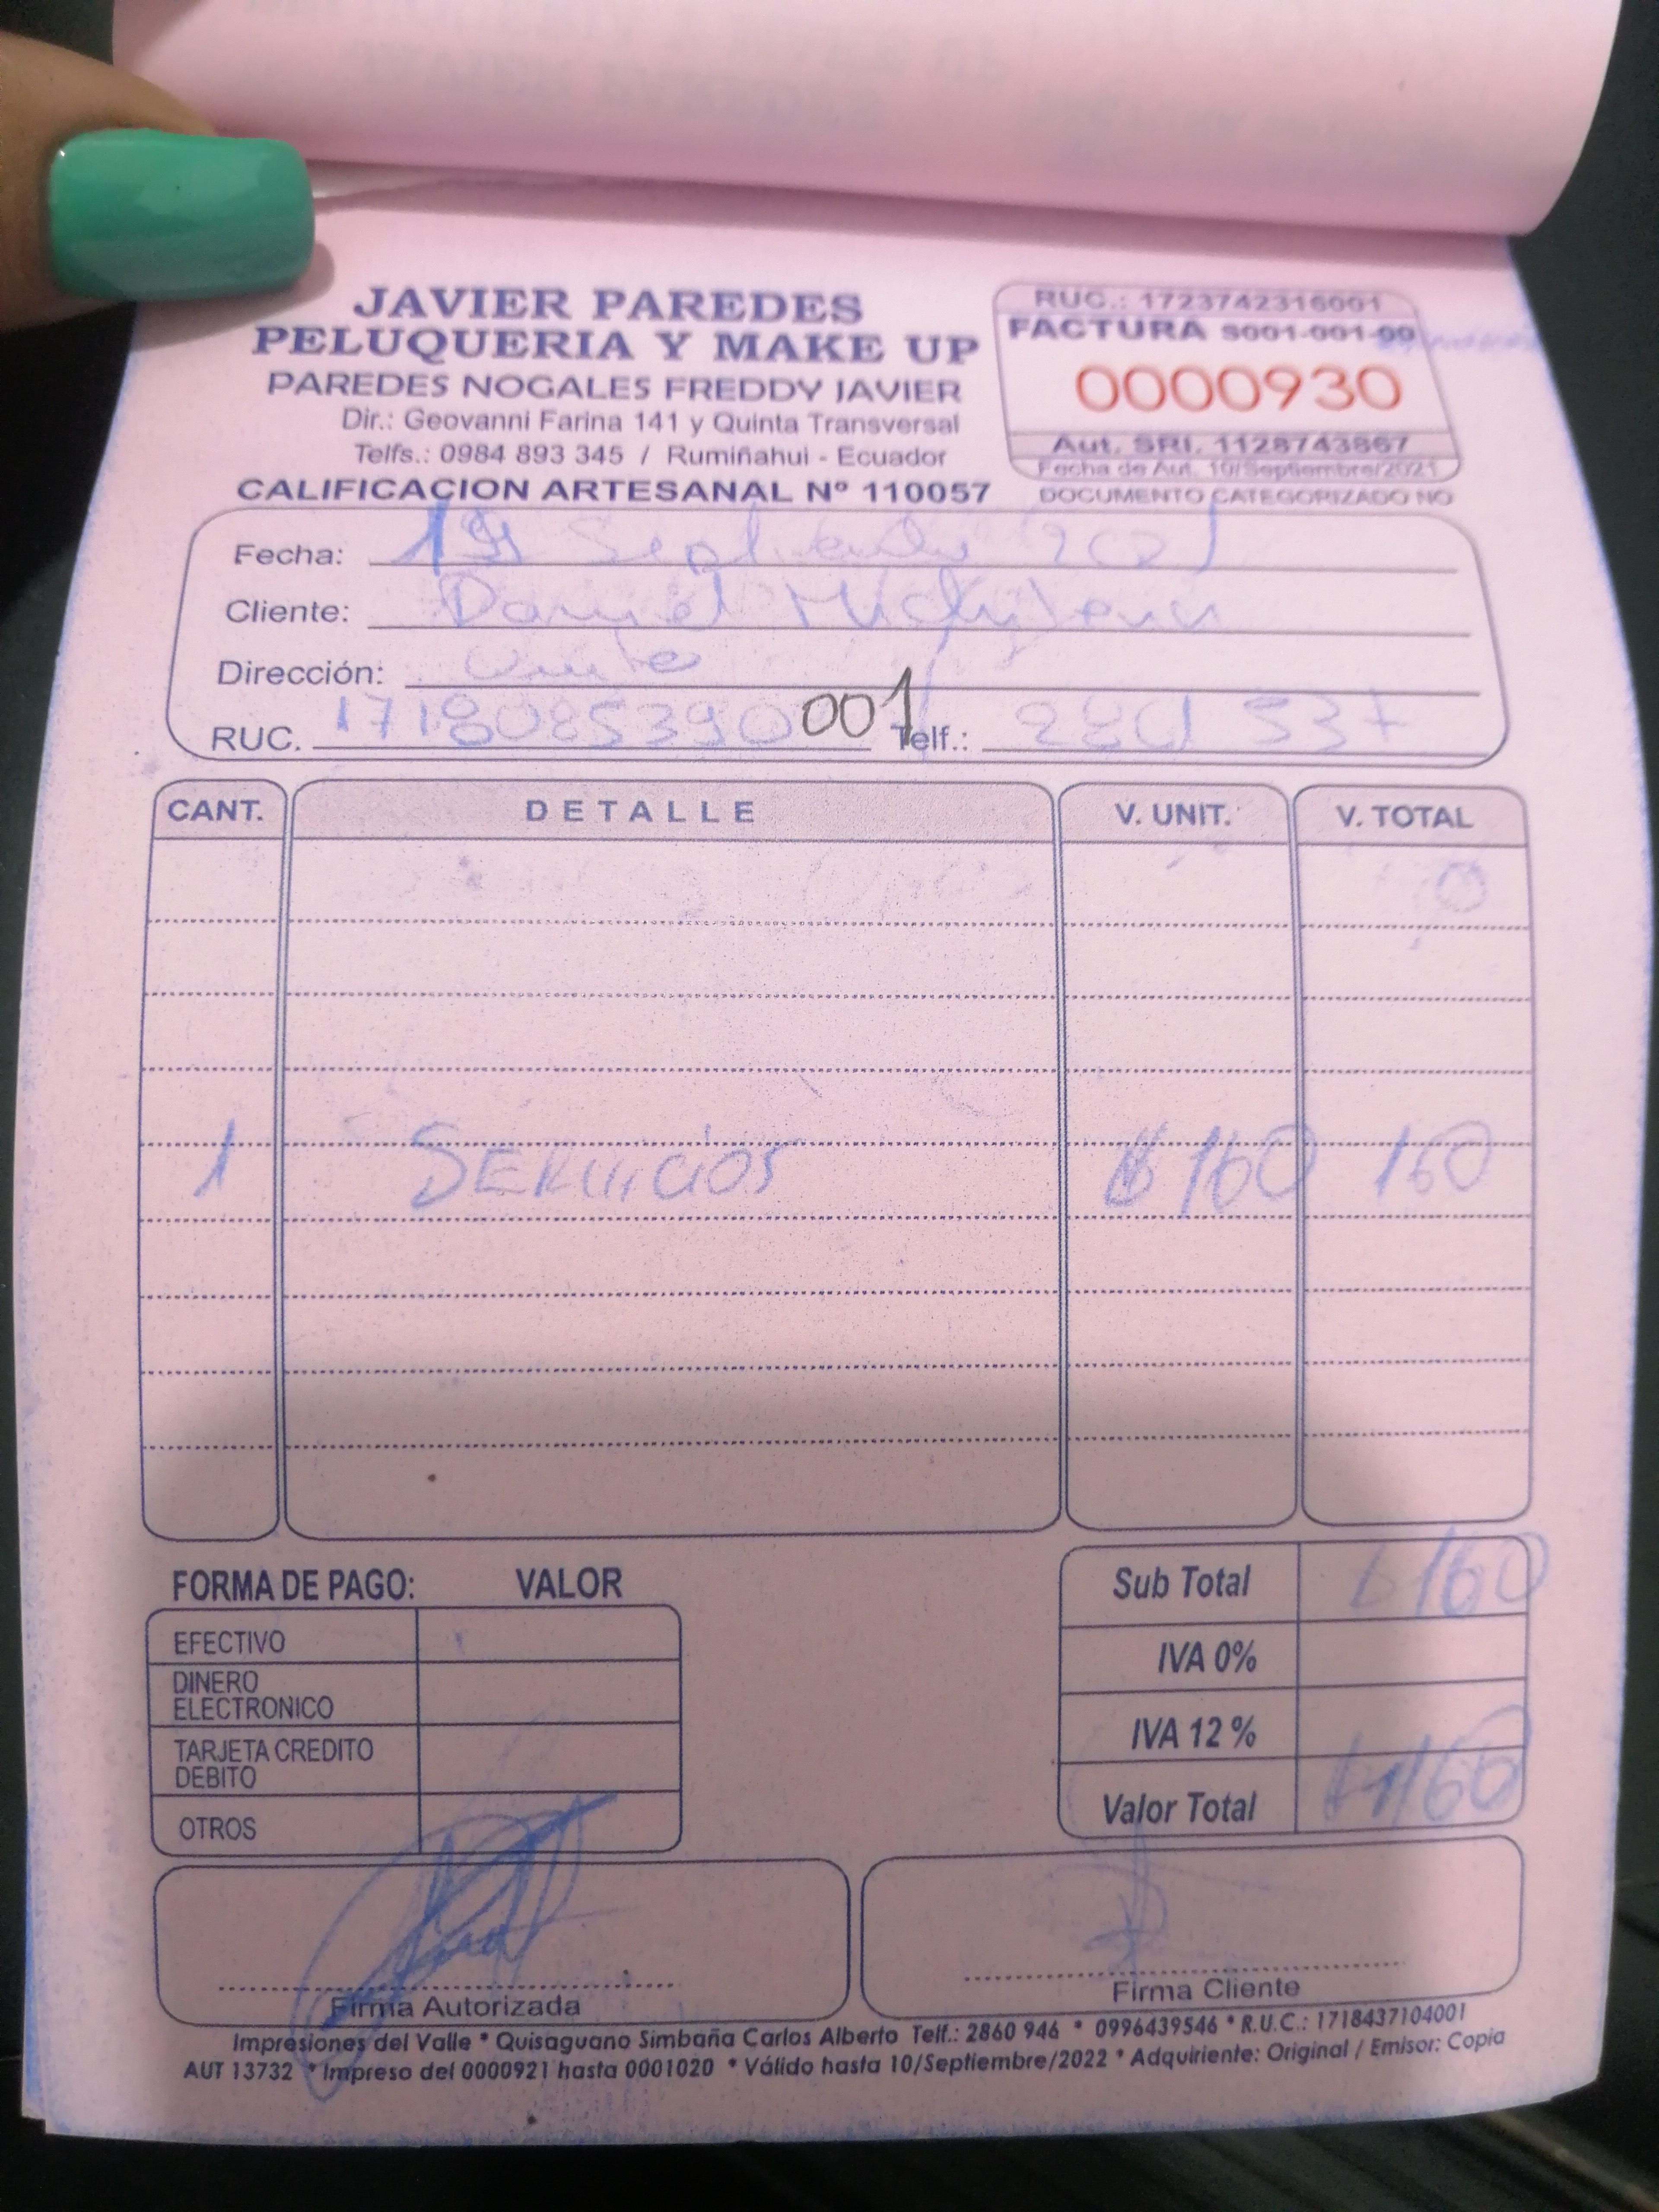 JAVIER PAREDES
PELUQUERIA Y MAKE UP
PAREDES NOGALES FREDDY JAVIER
Dir.: Geovanni Farina 141 y Quinta Transversal
Telfs.: 0984 893 345 / Rumiñahui - Ecuador
CALIFICACION ARTESANAL Nº 110057
RUC.: 1723742316001
FACTURA S001-001-00
0000930
Aut. SRI. 1128743867
Fecha de Aut. 10/Septiembre/2021
DOCUMENTO CATEGORIZADO NO
Fecha: Septiembre 2021
Cliente: Daniel
Dirección: Quito
RUC. 1718085390001 Telf.: 537
CANT. DETALLE V. UNIT. V. TOTAL
1 SERVICIOS $160 160
FORMA DE PAGO: VALOR
EFECTIVO
DINERO
ELECTRONICO
TARJETA CREDITO
DEBITO
OTROS
Sub Total $160
IVA 0%
IVA 12 %
Valor Total $160
Firma Autorizada
Firma Cliente
Impresiones del Valle * Quisaguano Simbaña Carlos Alberto Telf.: 2860 946 * 0996439546 * R.U.C.: 1718437104001
AUT 13732 * Impreso del 0000921 hasta 0001020 * Válido hasta 10/Septiembre/2022 * Adquiriente: Original / Emisor: Copia